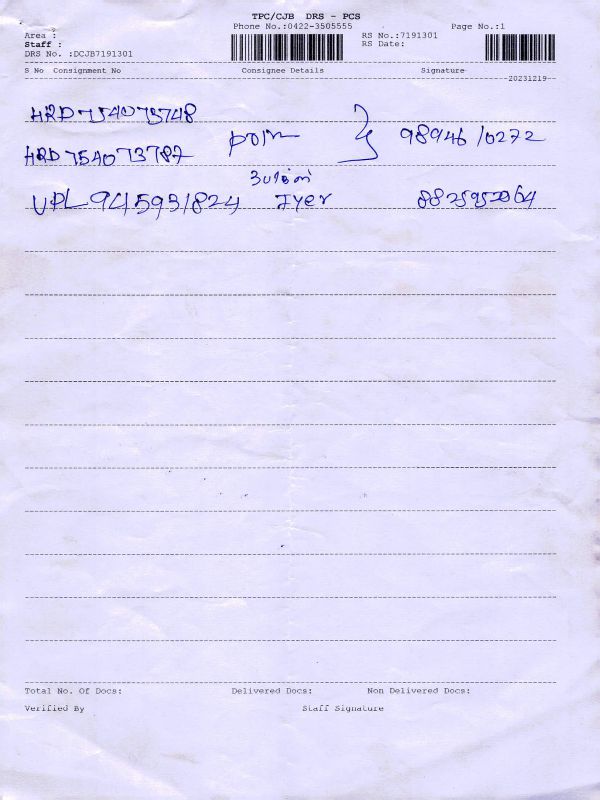 TPC/CJB DRS - PCS
Phone No.:0422-3505555 Page No.:1
Area : RS No.:7191301
Staff : RS Date:
DRS No. :DCJB7191301
S No Consignment No Consignee Details Signature
20231219
HRD754073748
HRD754073787 98946 10272
UPL945931824 Iyer
Total No. Of Docs: Delivered Docs: Non Delivered Docs:
Verified By Staff Signature